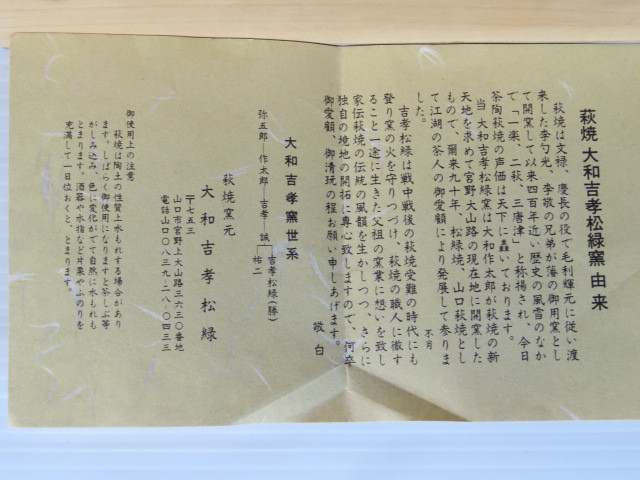 萩焼 大和吉孝松緑窯 由来
萩焼は文禄、慶長の役で毛利輝元に従い渡
来した李勺光、李敬の兄弟が藩の御用窯とし
て開窯して以来四百年近い歴史の風雪のなか
で「一楽、二萩、三唐津」と称揚され、今日
茶陶萩焼の声価は天下に轟いております。
当 大和吉孝松緑窯は大和作太郎が萩焼の新
天地を求めて宮野大山路の現在地に開窯した
もので、爾来九十年、松緑焼、山口萩焼とし
て江湖の茶人の御愛顧により発展して参りま
した。
吉孝松緑は戦中戦後の萩焼受難の時代にも
登り窯の火を守りつづけ、萩焼の職人に徹す
ること一途に生きた父祖の窯業に想いを致し
家伝萩焼の伝統の風韻を生かしつつ、さらに
独自の境地の開拓に専心致しますので、何卒
御愛顧、御清玩の程お願い申しあげます。
敬白
大和吉孝窯世系
弥五郎―作太郎―吉孝―誠
吉孝松緑(勝)
祐二
萩焼窯元
大和吉孝松緑
〒七五三
山口市宮野上大山路三六三〇番地
電話山口〇八三九-二八-〇四三三
御使用上の注意
萩焼は陶土の性質上水もれする場合があり
ます。しばらく御使用になりますと茶しぶ等
がしみ込み、色に変化がでて自然に水もれも
とまります。酒器や水指など片栗やふのりを
充満して一日位おくと、とまります。